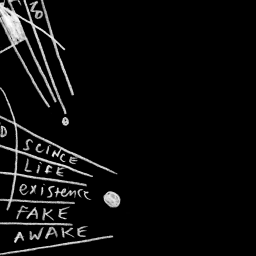 SCINCE
LIFE
existence
FAKE
AWAKE